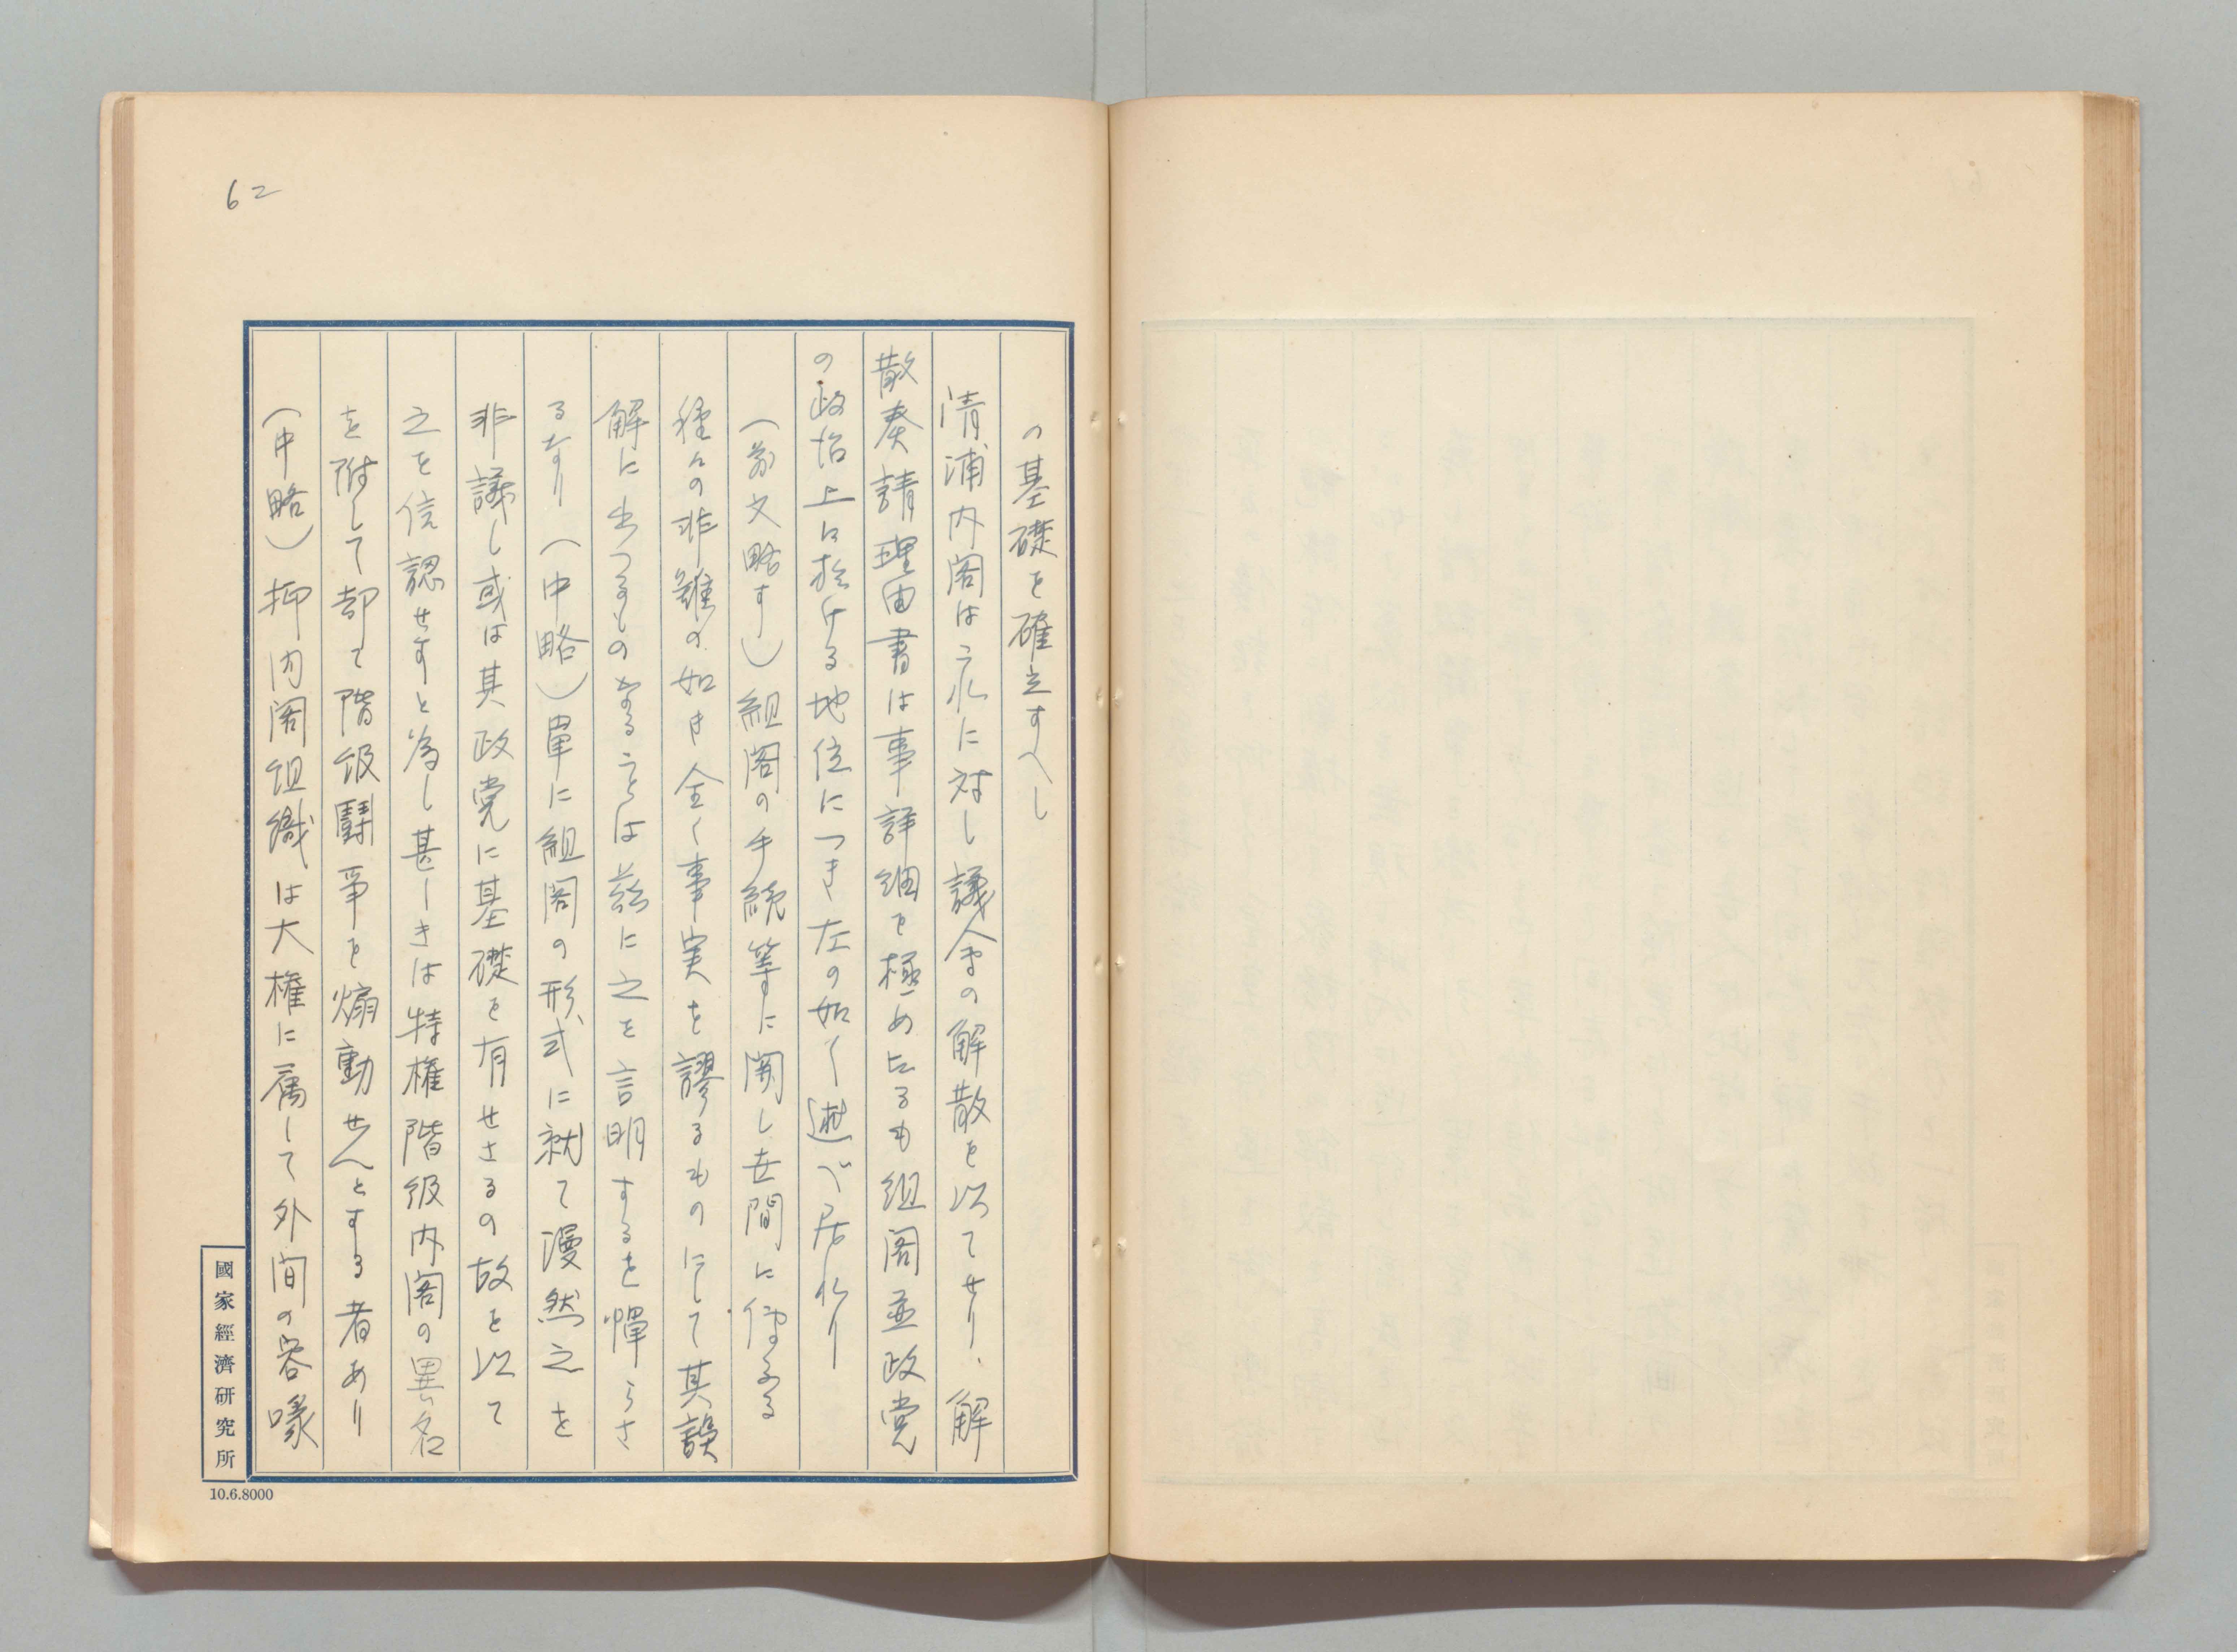 62
の基礎を確立すへし
清浦内閣は之れに対し議会の解散を以てせり、解
散奏請理由書は事詳細を極めたるも組閣並政党
の政治上に於ける地位につき左の如く述べ居れり
(前文略す)組閣の手続等に関し世間に伝ふる
種々の非難の如き全く事実を謬るものにして其誤
解に出つるものなることは茲に之を言明するを憚らさ
るなり(中略)単に組閣の形式に就て漫然之を
非議し或は其政党に基礎を有せさるの故を以て
之を信認せすと為し甚しきは特権階級内閣の異名
を附して却て階級闘争を煽動せんとする者あり
(中略)抑内閣組織は大権に属して外間の容喙
國家經濟研究所
10.6.8000